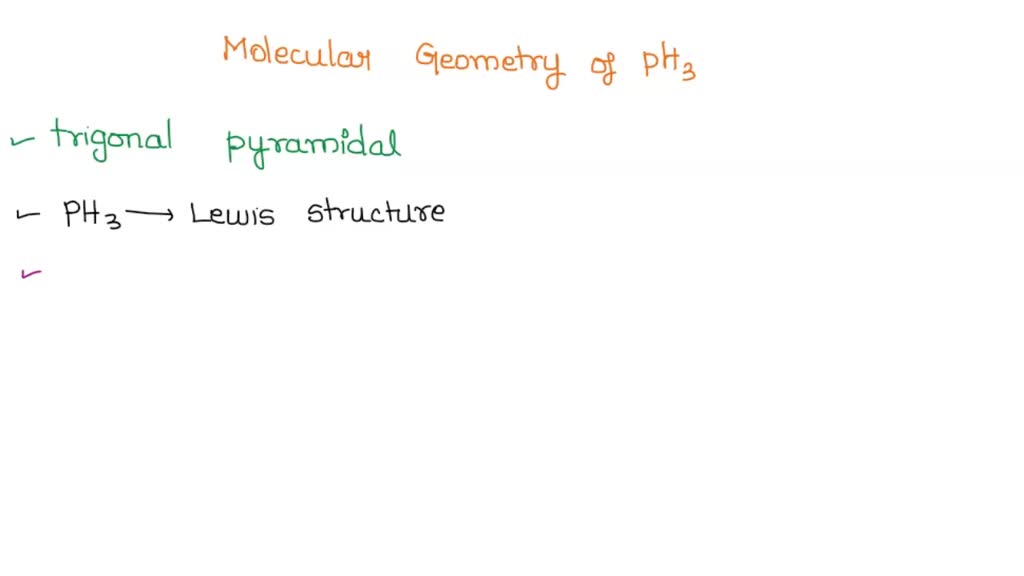 Molecular Geometry of PH3
✓ trigonal pyramidal
✓ PH3 → Lewis structure
✓